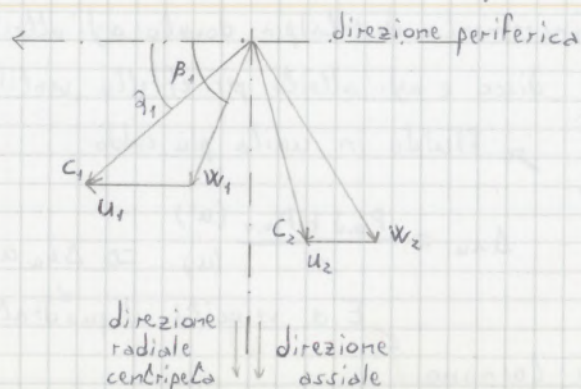 direzione periferica
β₁
α₁
C₁
W₁
U₁
C₂
W₂
U₂
direzione
radiale
centripeta
direzione
assiale